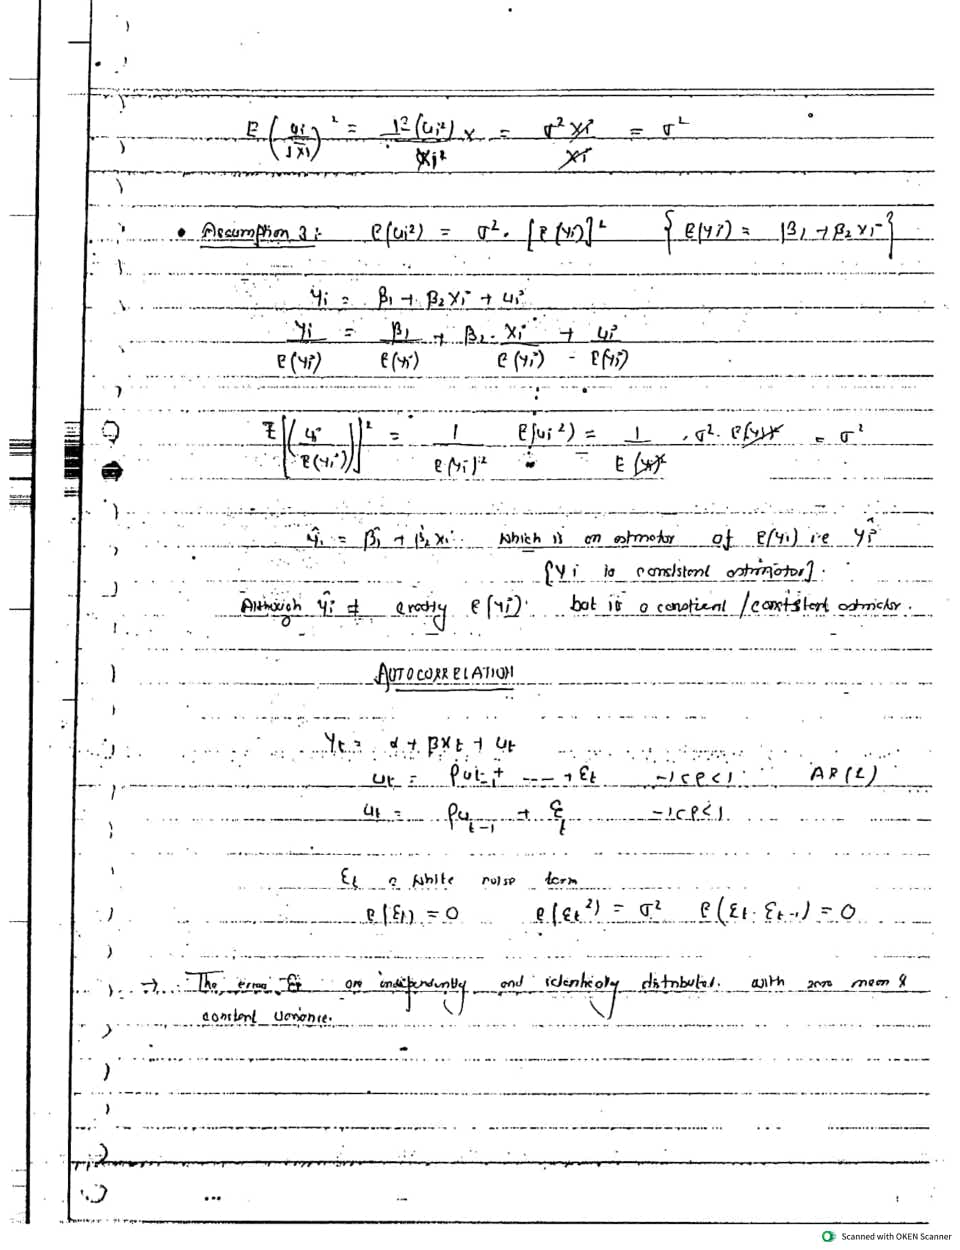 E(ui/√xi)² = E(ui²)/xi² x = σ² xi/xi = σ²
• Assumption 3:- E(ui²) = σ². [E(yi)]² {E(yi) = β1 + β2 xi}
yi = β1 + β2 xi + ui
yi/E(yi) = β1/E(yi) + β2 . xi/E(yi) + ui/E(yi)
E[(ui/E(yi))]² = 1/E(yi)² E(ui²) = 1/E(yi)² . σ². E(yi)² = σ²
ŷi = β̂1 + β̂2 xi which is an estmator of E(yi) i.e ŷi
[yi is consistent estimator].
Although ŷi ≠ exactly E(yi). but is a / consistent estmator.
AUTOCORRELATION
Yt = α + βXt + ut
ut = ρut-1 + ---- + εt -1<ρ<1 AR(2)
ut = ρut-1 + εt -1<ρ<1
εt a white noise term
E(εt) = 0 E(εt²) = σ² E(εt. εt-1) = 0
→ The error εt are independently and identically distributed. with zero mean &
constant variance.
Scanned with OKEN Scanner